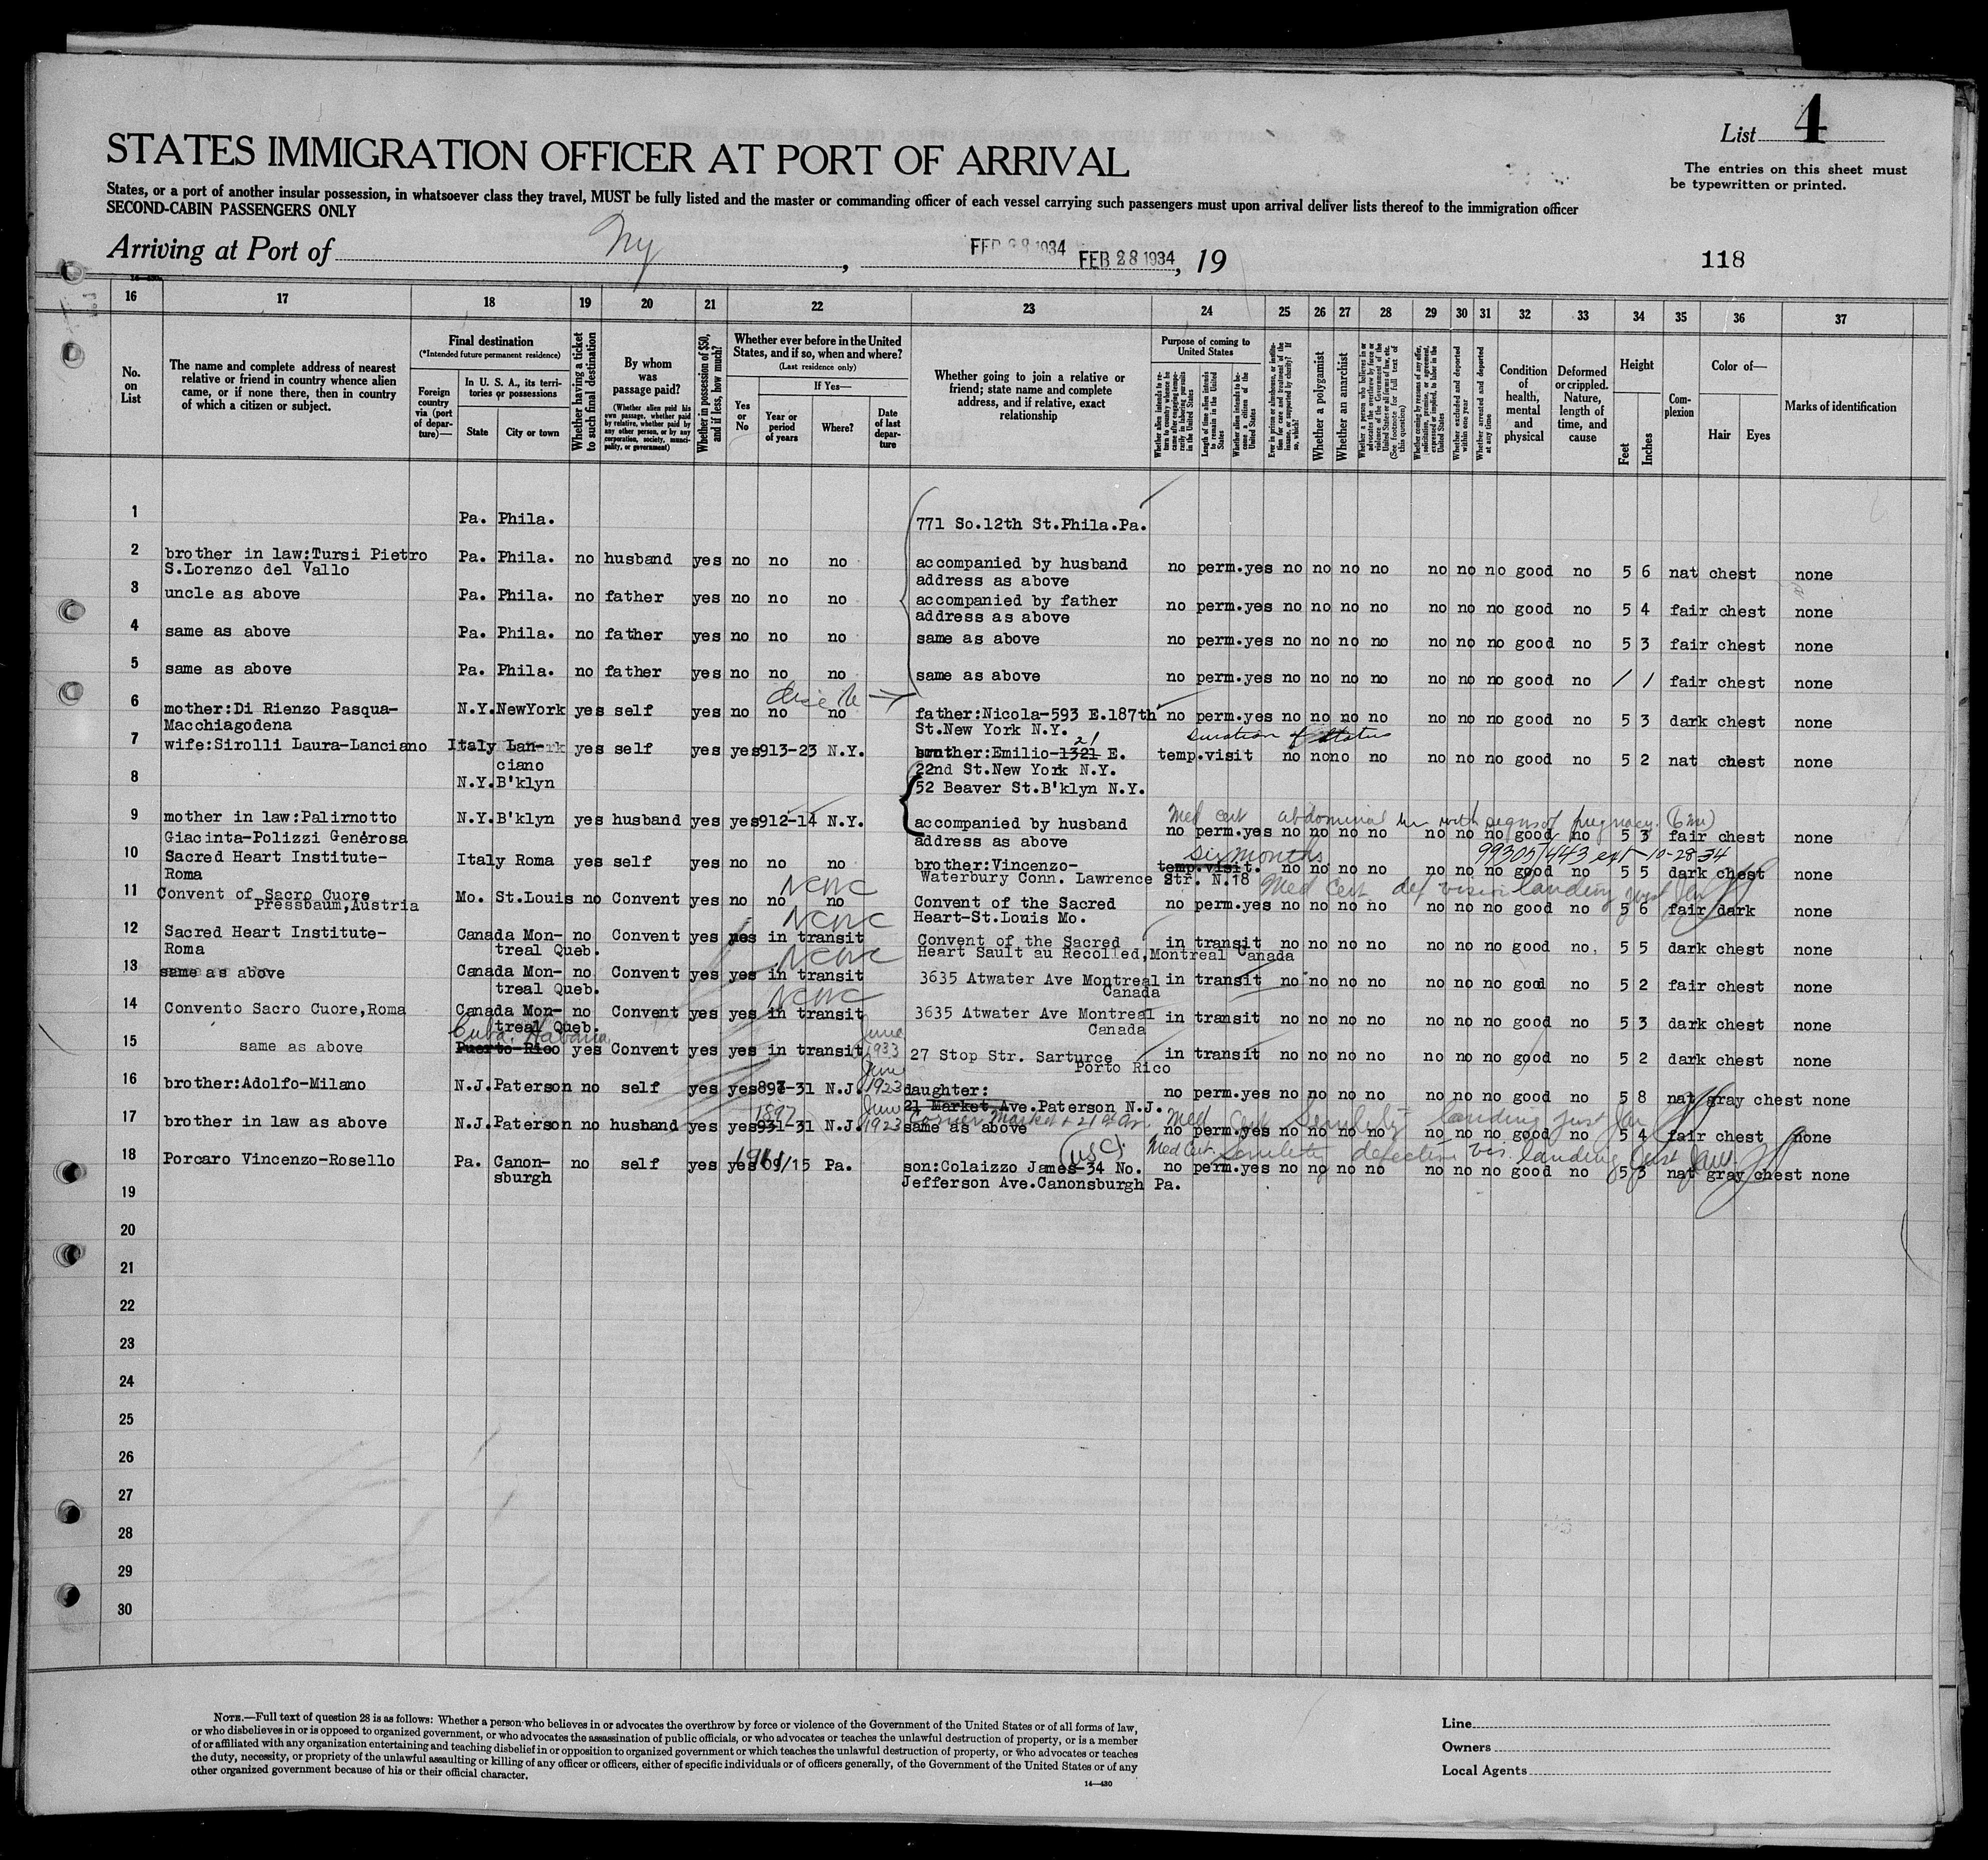 List 4
STATES IMMIGRATION OFFICER AT PORT OF ARRIVAL
The entries on this sheet must
be typewritten or printed.
States, or a port of another insular possession, in whatsoever class they travel, MUST be fully listed and the master or commanding officer of each vessel carrying such passengers must upon arrival deliver lists thereof to the immigration officer
SECOND-CABIN PASSENGERS ONLY
Arriving at Port of Ny, FEB 28 1934 FEB 28 1934, 19
118
16 17 18 19 20 21 22 23 24 25 26 27 28 29 30 31 32 33 34 35 36 37
No. on List
The name and complete address of nearest relative or friend in country whence alien came, or if none there, then in country of which a citizen or subject.
Final destination
(*Intended future permanent residence)
Foreign country via (port of departure)—
In U. S. A., its territories or possessions
State
City or town
Whether having a ticket to such final destination
By whom was passage paid?
(Whether alien paid his own passage, whether paid by relative, whether paid by any other person, or by any corporation, society, municipality, or government)
Whether in possession of $50, and if less, how much?
Whether ever before in the United States, and if so, when and where?
(Last residence only)
Yes or No
If Yes—
Year or period of years
Where?
Date of last departure
Whether going to join a relative or friend; state name and complete address, and if relative, exact relationship
Purpose of coming to United States
Whether alien intends to return to country whence he came after engaging temporarily in laboring pursuits in the United States
Length of time alien intends to remain in the United States
Whether alien intends to become a citizen of the United States
Ever in prison or almshouse, or institution for care and treatment of the insane, or supported by charity? If so, which?
Whether a polygamist
Whether an anarchist
Whether a person who believes in or advocates the overthrow by force or violence of the Government of the United States or all forms of law, etc. (See footnote for full text of this question)
Whether coming by reason of any offer, solicitation, promise, or agreement, expressed or implied, to labor in the United States
Whether excluded and deported within one year
Whether arrested and deported at any time
Condition of health, mental and physical
Deformed or crippled. Nature, length of time, and cause
Height
Feet
Inches
Complexion
Color of—
Hair
Eyes
Marks of identification
1 Pa. Phila. 771 So.12th St.Phila.Pa.
2 brother in law:Tursi Pietro Pa. Phila. no husband yes no no no accompanied by husband no perm.yes no no no no no no no good no 5 6 nat chest none
S.Lorenzo del Vallo address as above
3 uncle as above Pa. Phila. no father yes no no no accompanied by father no perm.yes no no no no no no no good no 5 4 fair chest none
address as above
4 same as above Pa. Phila. no father yes no no no same as above no perm.yes no no no no no no no good no 5 3 fair chest none
5 same as above Pa. Phila. no father yes no no no same as above no perm.yes no no no no no no no good no / / fair chest none
6 mother:Di Rienzo Pasqua- N.Y.NewYork yes self yes no no no father:Nicola-593 E.187th no perm.yes no no no no no no no good no 5 3 dark chest none
Macchiagodena St.New York N.Y.
Duration of Status
7 wife:Sirolli Laura-Lanciano Italy Lan- yes self yes yes913-23 N.Y. brother:Emilio-1321 E. temp.visit no nono no no no no good no 5 2 nat chest none
21
ciano 22nd St.New York N.Y.
8 N.Y.B'klyn 52 Beaver St.B'klyn N.Y.
Med cert abdominal with signs of pregnancy. (6 m)
9 mother in law:Palirnotto N.Y.B'klyn yes husband yes yes912-14 N.Y. accompanied by husband no perm.yes no no no no no no no good no 5 3 fair chest none
Giacinta-Polizzi Generosa address as above
Six months 99305/443 ext-10-28-34
10 Sacred Heart Institute- Italy Roma yes self yes no no no brother:Vincenzo- temp.visit. no no no no no no no good no 5 5 dark chest none
Roma Waterbury Conn. Lawrence Str. N.18
NCWC Med Cert def vision landing just
11 Convent of Sacro Cuore Mo. St.Louis no Convent yes no no no Convent of the Sacred no perm.yes no no no no no no no good no 5 6 fair dark none
Pressbaum,Austria Heart-St.Louis Mo.
NCWC
12 Sacred Heart Institute- Canada Mon- no Convent yes yes in transit Convent of the Sacred in transit no no no no no no no good no. 5 5 dark chest none
Roma treal Queb. Heart Sault au Recolled,Montreal Canada
NCWC
13 same as above Canada Mon- no Convent yes yes in transit 3635 Atwater Ave Montreal in transit no no no no no no no good no 5 2 fair chest none
treal Queb. Canada
NCWC
14 Convento Sacro Cuore,Roma Canada Mon- no Convent yes yes in transit 3635 Atwater Ave Montreal in transit no no no no no no no good no 5 3 dark chest none
treal Queb. Canada
Cuba. Habana June 1933
15 same as above Puerto Rico yes Convent yes yes in transit 27 Stop Str. Sarturce in transit no no no no no no no good no 5 2 dark chest none
Porto Rico
June 1923
16 brother:Adolfo-Milano N.J.Paterson no self yes yes897-31 N.J. daughter: no perm.yes no no no no no no no good no 5 8 nat gray chest none
21 Market,Ave.Paterson N.J.
1897 June 1923 corner Market & 21st Av. Med Cert Senility landing just
17 brother in law as above N.J.Paterson no husband yes yes931-31 N.J. same as above no perm.yes no no no no no no no good no 5 4 fair chest none
1911 (USC). Med Cert. Senility defective vis. landing just
18 Porcaro Vincenzo-Rosello Pa. Canon- no self yes yes 09/15 Pa. son:Colaizzo James-34 No. no perm.yes no no no no no no no good no 5 3 nat gray chest none
sburgh Jefferson Ave.Canonsburgh Pa.
19
20
21
22
23
24
25
26
27
28
29
30
NOTE.—Full text of question 28 is as follows: Whether a person who believes in or advocates the overthrow by force or violence of the Government of the United States or of all forms of law,
or who disbelieves in or is opposed to organized government, or who advocates the assassination of public officials, or who advocates or teaches the unlawful destruction of property, or is a member
of or affiliated with any organization entertaining and teaching disbelief in or opposition to organized government or which teaches the unlawful destruction of property, or who advocates or teaches
the duty, necessity, or propriety of the unlawful assaulting or killing of any officer or officers, either of specific individuals or of officers generally, of the Government of the United States or of any
other organized government because of his or their official character.
14—430
Line
Owners
Local Agents